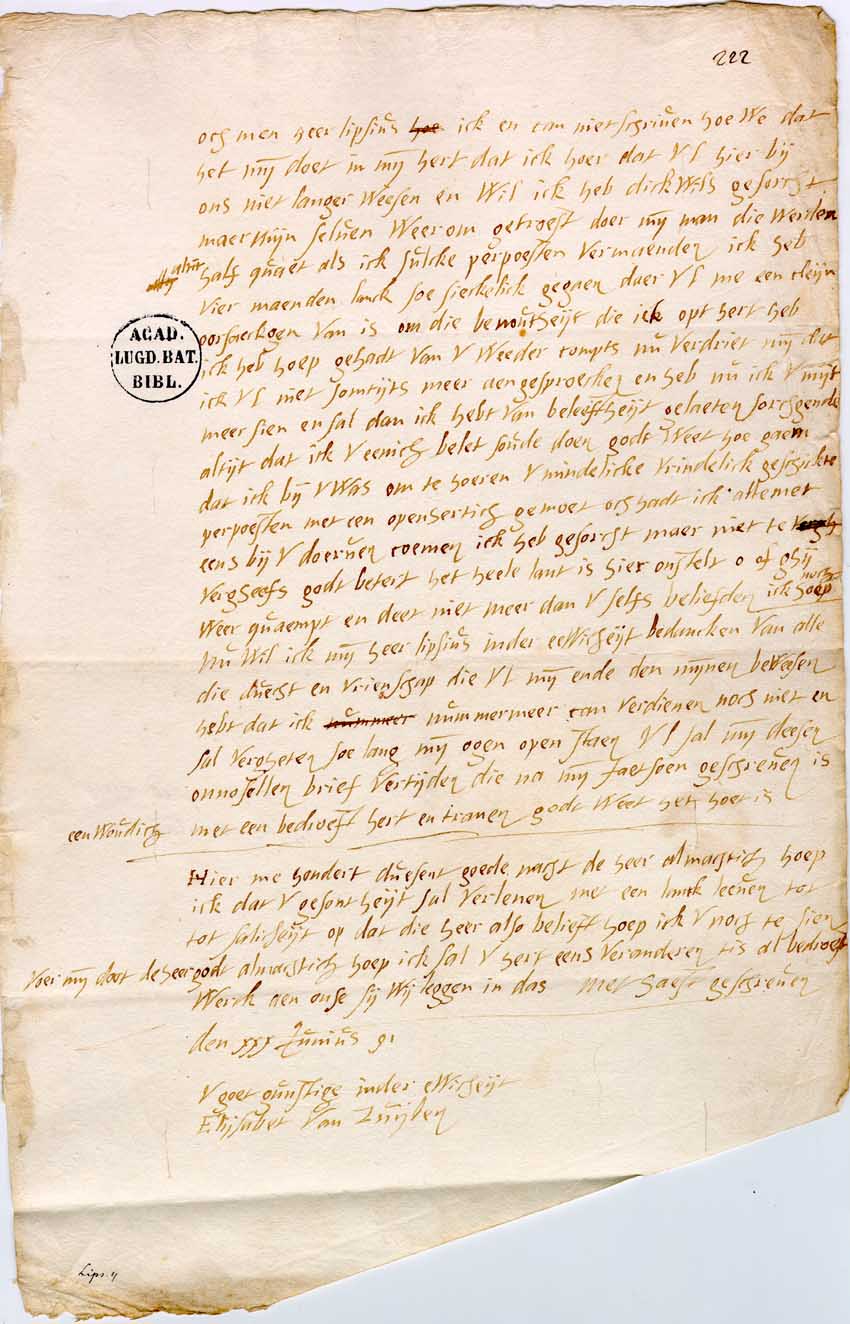 222
och men heer lipsius hoe ick en can niet schriuen hoe We dat
het mÿ doet in mÿ hert dat ick hoer dat V l hier bÿ
ons niet langer Weesen en Wil ick heb dickWils gesorcht
maer mijn seluen Weerom getroest doer mÿ man die Werden
half quaet als ick sulcke perpoesten Vermaenden ick heb
Vier maenden lanck soe sieckelick gegaen daer V l me een cleijn
oorspronck Van is om die benoutheijt die ick opt hert heb
ACAD.
LUGD. BAT.
BIBL.
ick heb hoep gehadt Van V Weeder compts nu Verdriet mÿ dat
ick V l niet somtijts meer aengesproecken en heb nu ick V
meer sien en sal dan ick hebt Van beleeftheijt gelaeten sorchgende
altijt dat ick V eenich belet soude doen godt Weet hoe gaern
dat ick bÿ V Was om te hoeren V mindelicke Vrindelick
perpoesten met een openhertich gemoet och hadt ick altemet
eens bÿ V doeruen coemen ick heb gesorcht maer niet te
Vergheefs godt betert het heele lant is hier onstelt o of ghÿ
Weer quaempt en deet niet meer dan V selfs beliefden ick hoep noch
Nu Wil ick mÿ heer lipsius inder eeWicheijt bedancken Van alle
die duecht en Vrienschap die V l mÿ ende den mÿnen beWesen
hebt dat ick nummeer nummermeer can Verdienen noch niet en
sal Vergheten soe lang mÿ ogen open staen V l sal mÿ deesen
onnosellen brief Vertijden die na mÿ faetsoen geschreuen is
eenWoudich met een bedroeft hert en tranen godt Weet het hoet is
Hier me hondert duesent goede nacht de heer almachtich hoep
ick dat V gesontheijt sal Verlenen met een lanck leeuen tot
tot salicheijt op dat die heer also belieft hoep ick V noch te sien
Voer mÿ doot de heer godt almachtich hoep ick sal V hert eens Veranderen tis al bedroeft
Werck aen onse sÿ Wÿ leggen in das met haest geschreuen
den xxx Junius 91
V goet gunstige inder eWicheijt
Elijsabet Van Zuijlen
Lips. 4